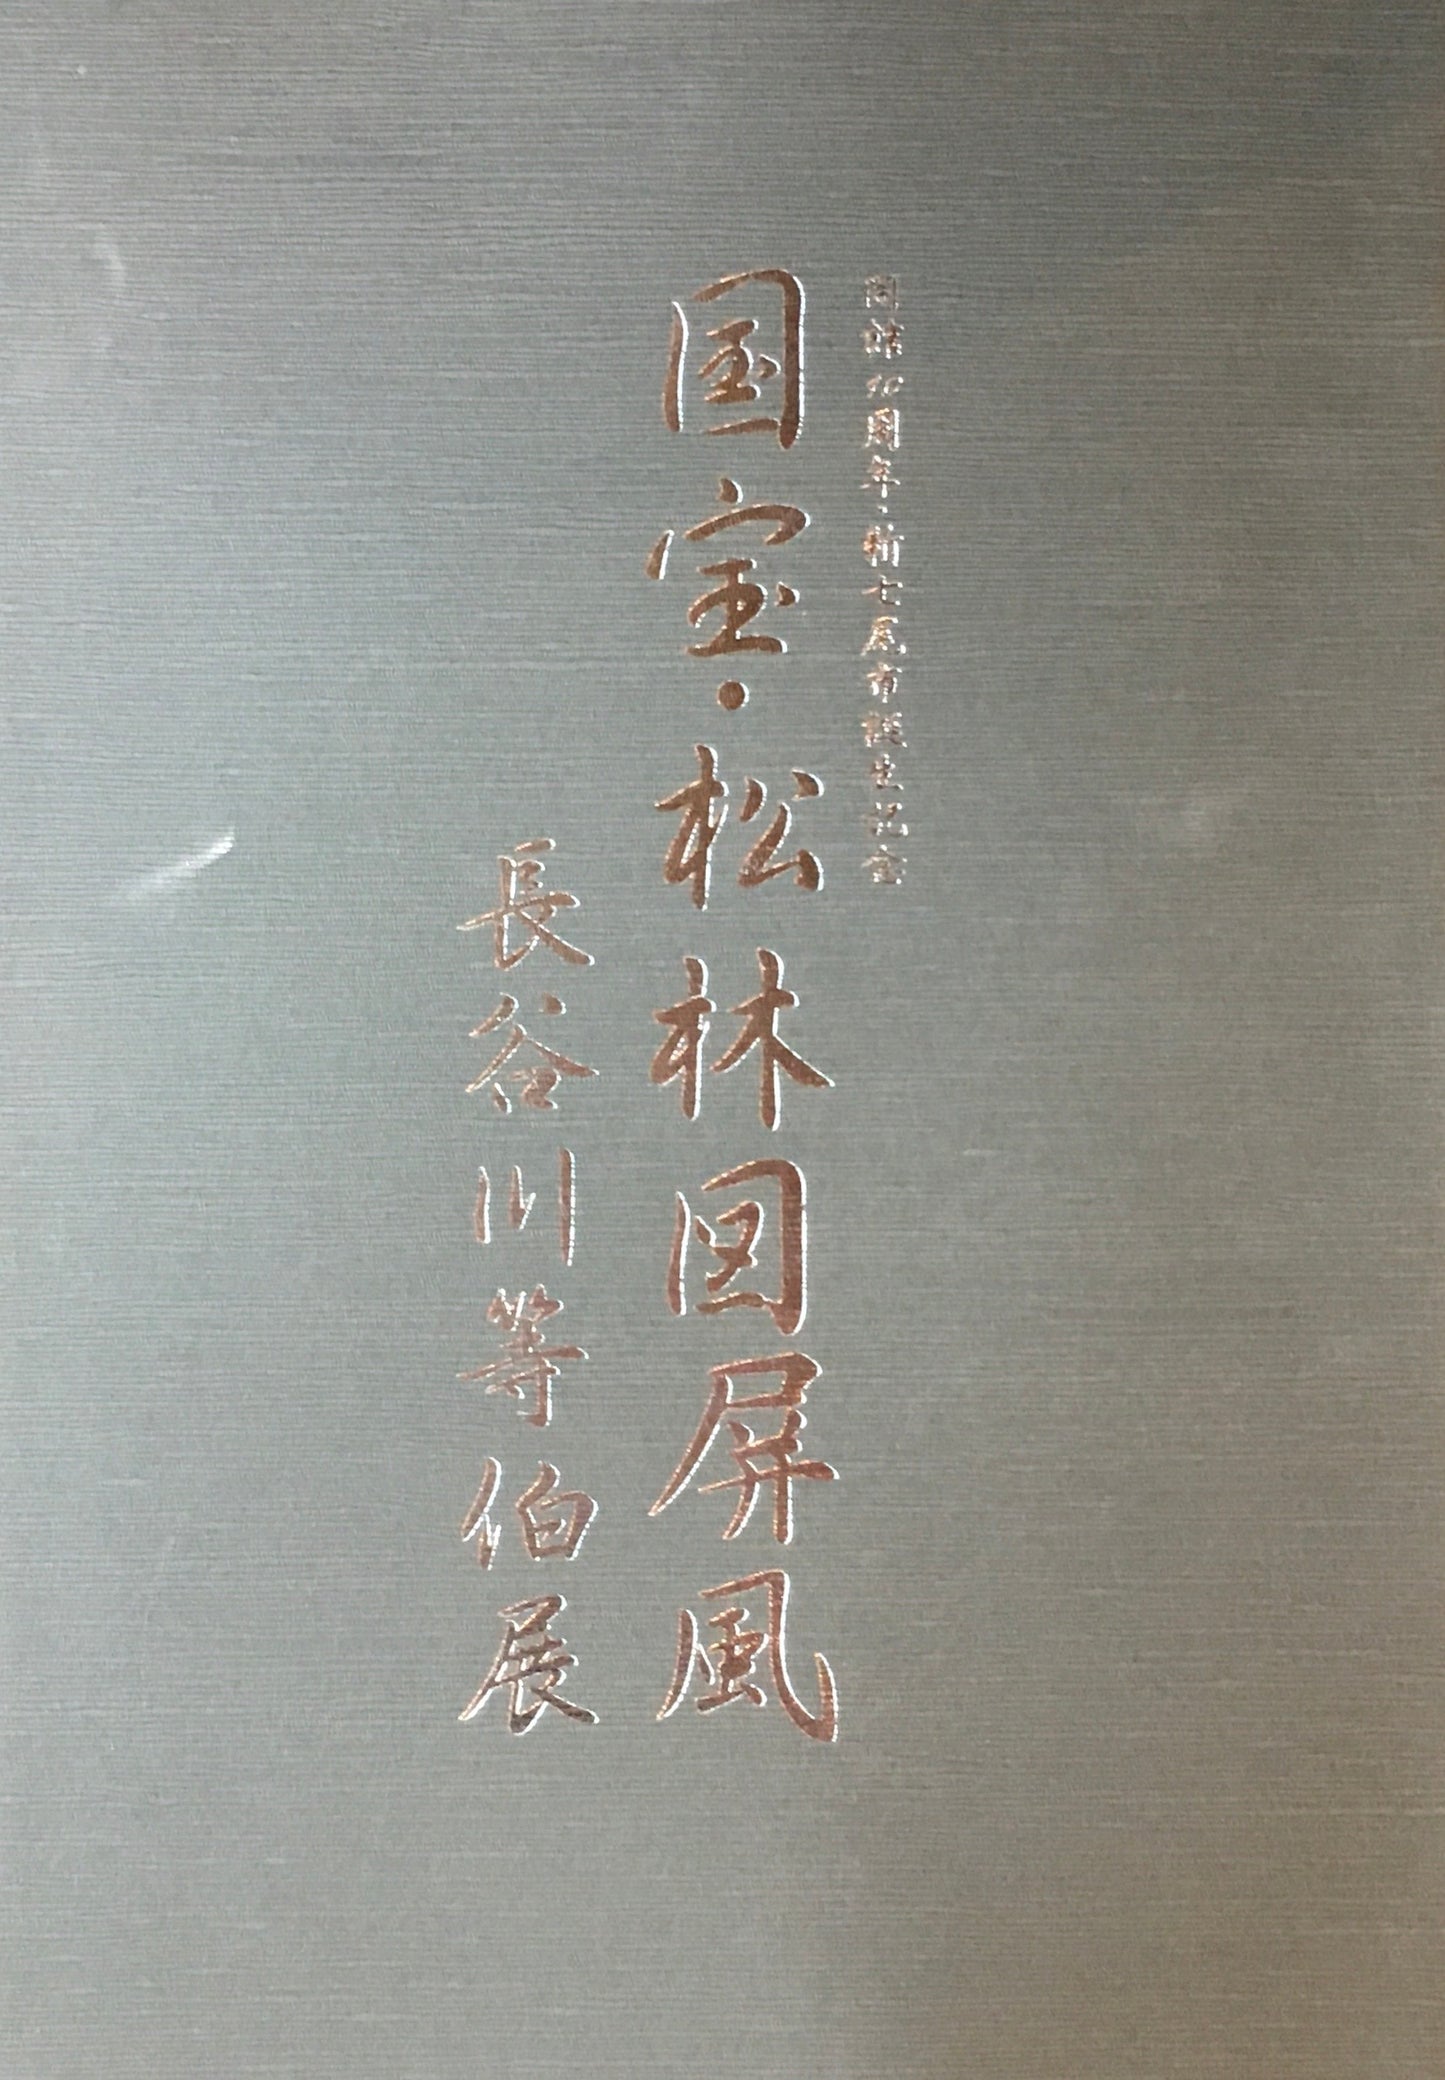 開館10周年・新七尾市誕生記念
国宝・松林図屏風
長谷川等伯展